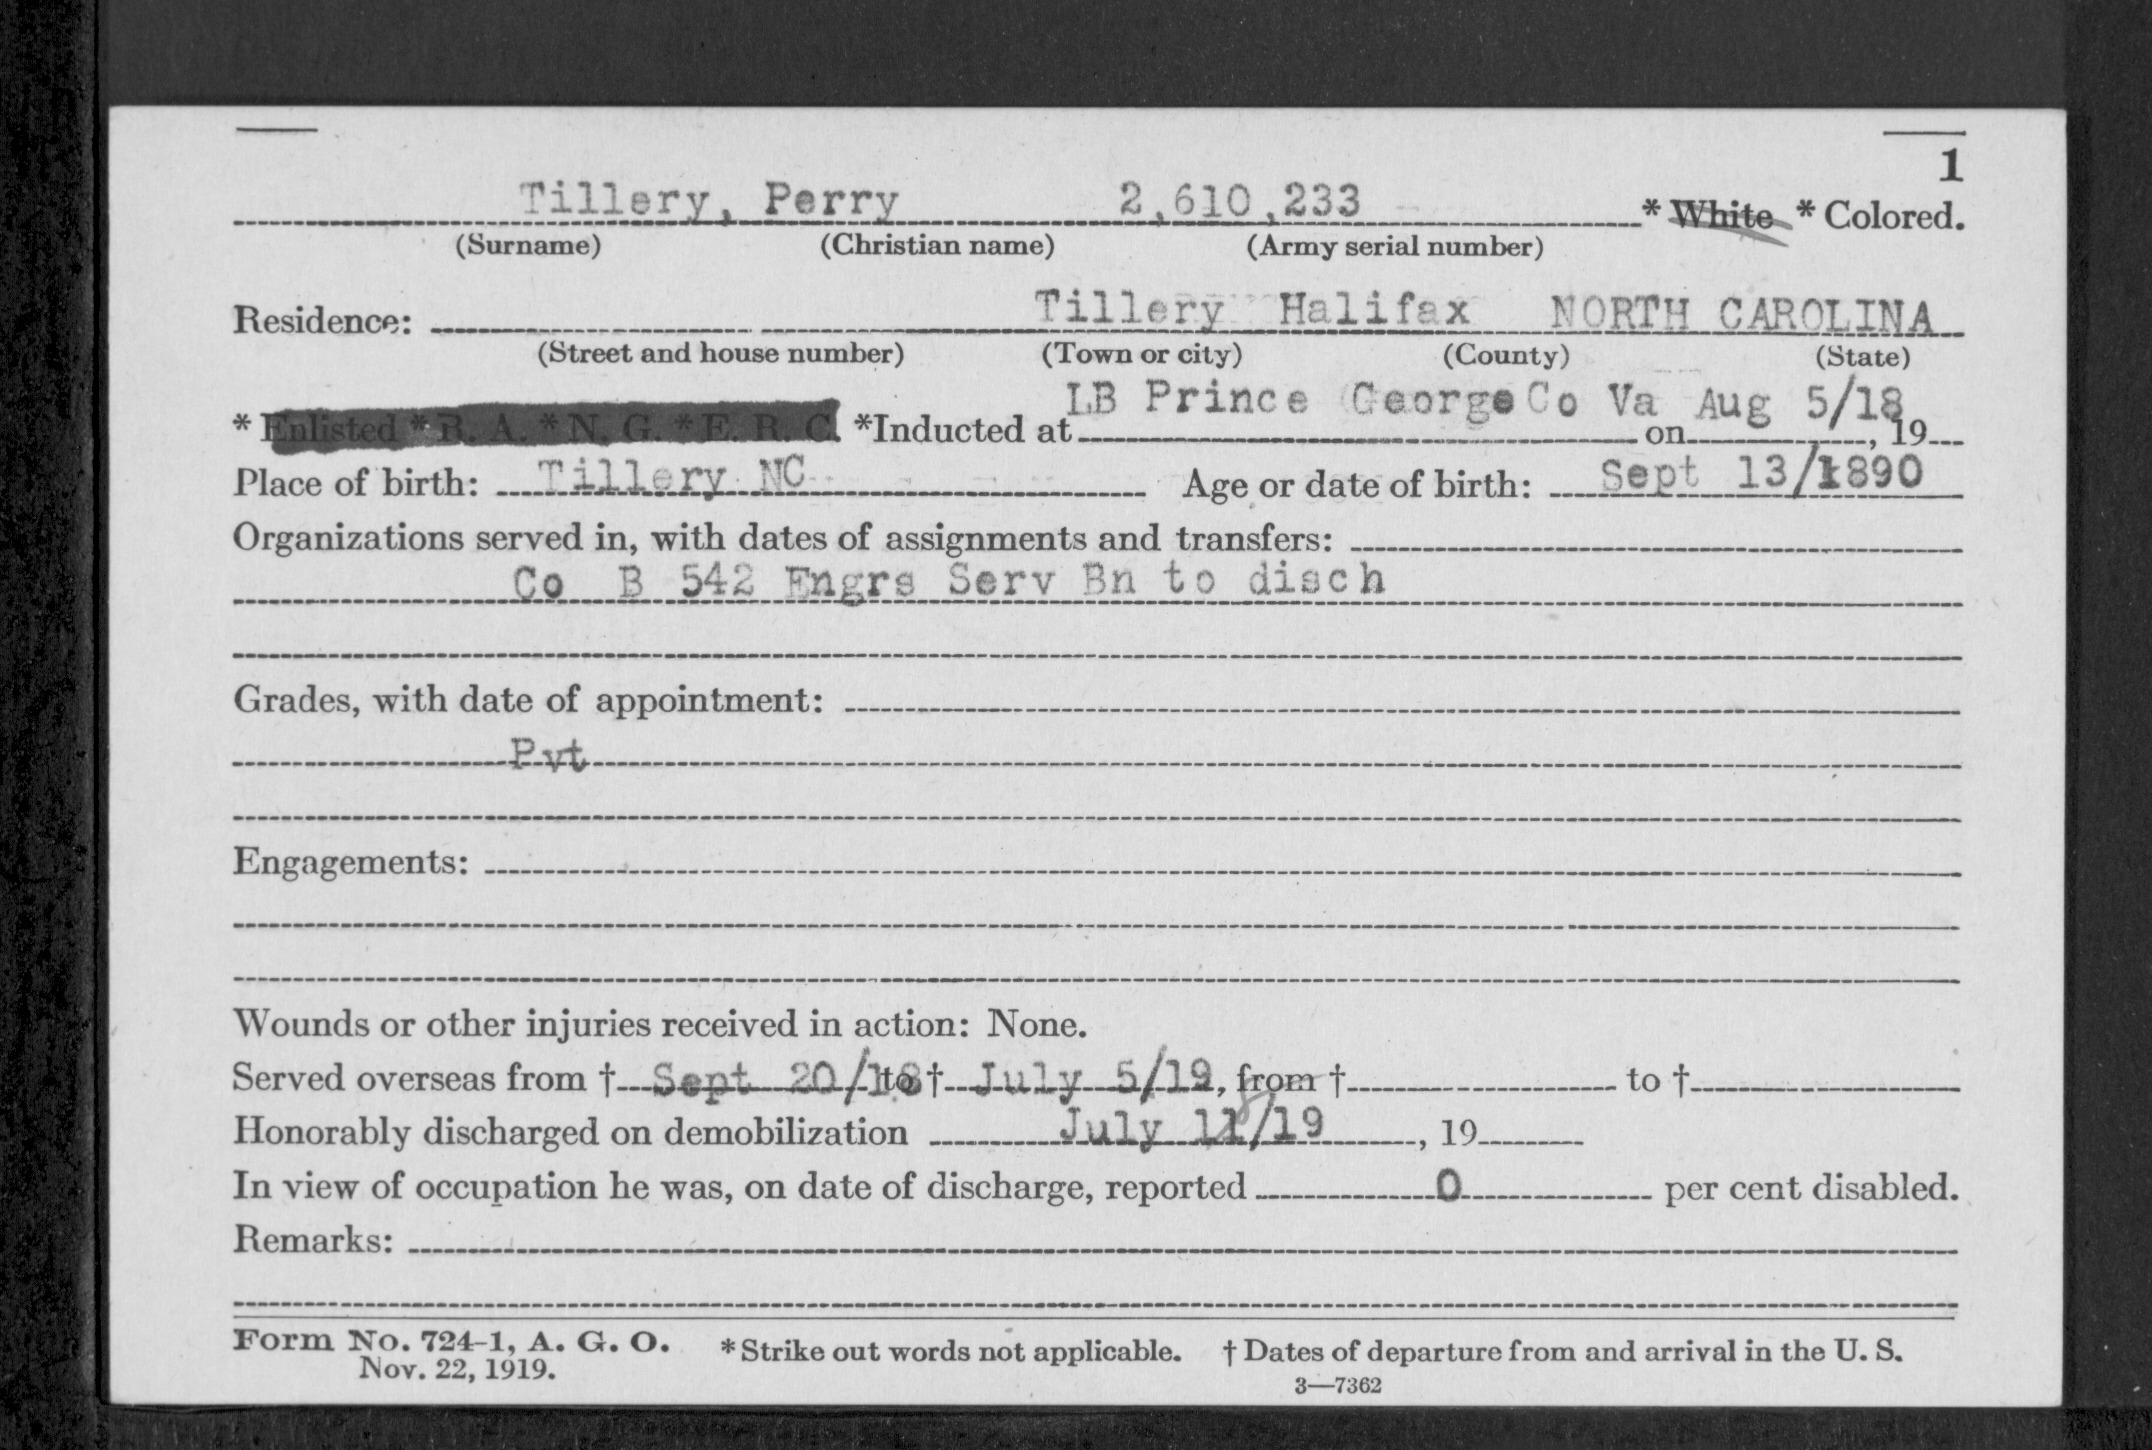 1
Tillery, Perry 2,610,233 * White * Colored.
(Surname) (Christian name) (Army serial number)
Residence: Tillery Halifax NORTH CAROLINA
(Street and house number) (Town or city) (County) (State)
LB Prince George Co Va Aug 5/18
* Enlisted * R. A. * N. G. * E. R. C. *Inducted at on , 19
Place of birth: Tillery NC Age or date of birth: Sept 13/1890
Organizations served in, with dates of assignments and transfers:
Co B 542 Engrs Serv Bn to disch
Grades, with date of appointment:
Pvt
Engagements:
Wounds or other injuries received in action: None.
Served overseas from † Sept 20/18 to † July 5/19, from † to †
Honorably discharged on demobilization July 11/19, 19
In view of occupation he was, on date of discharge, reported 0 per cent disabled.
Remarks:
Form No. 724-1, A. G. O. * Strike out words not applicable. † Dates of departure from and arrival in the U. S.
Nov. 22, 1919.
3—7362